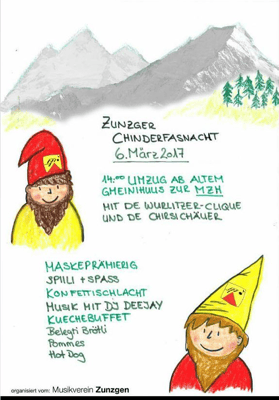 ZUNZGER
CHINDERFASNACHT
6. März 2017
14:00 UMZUG AB ALTEM
GMEINIHUUS ZUR MZH
MIT DE WURLITZER-CLIQUE
UND DE CHIRSICHÄUER
MASKEPRÄMIERIG
SPIILI + SPASS
KONFETTISCHLACHT
MUSIK MIT DJ DEEJAY
KUECHEBUFFET
Belegti Brötli
Pommes
Hot Dog
organisiert vom: Musikverein Zunzgen